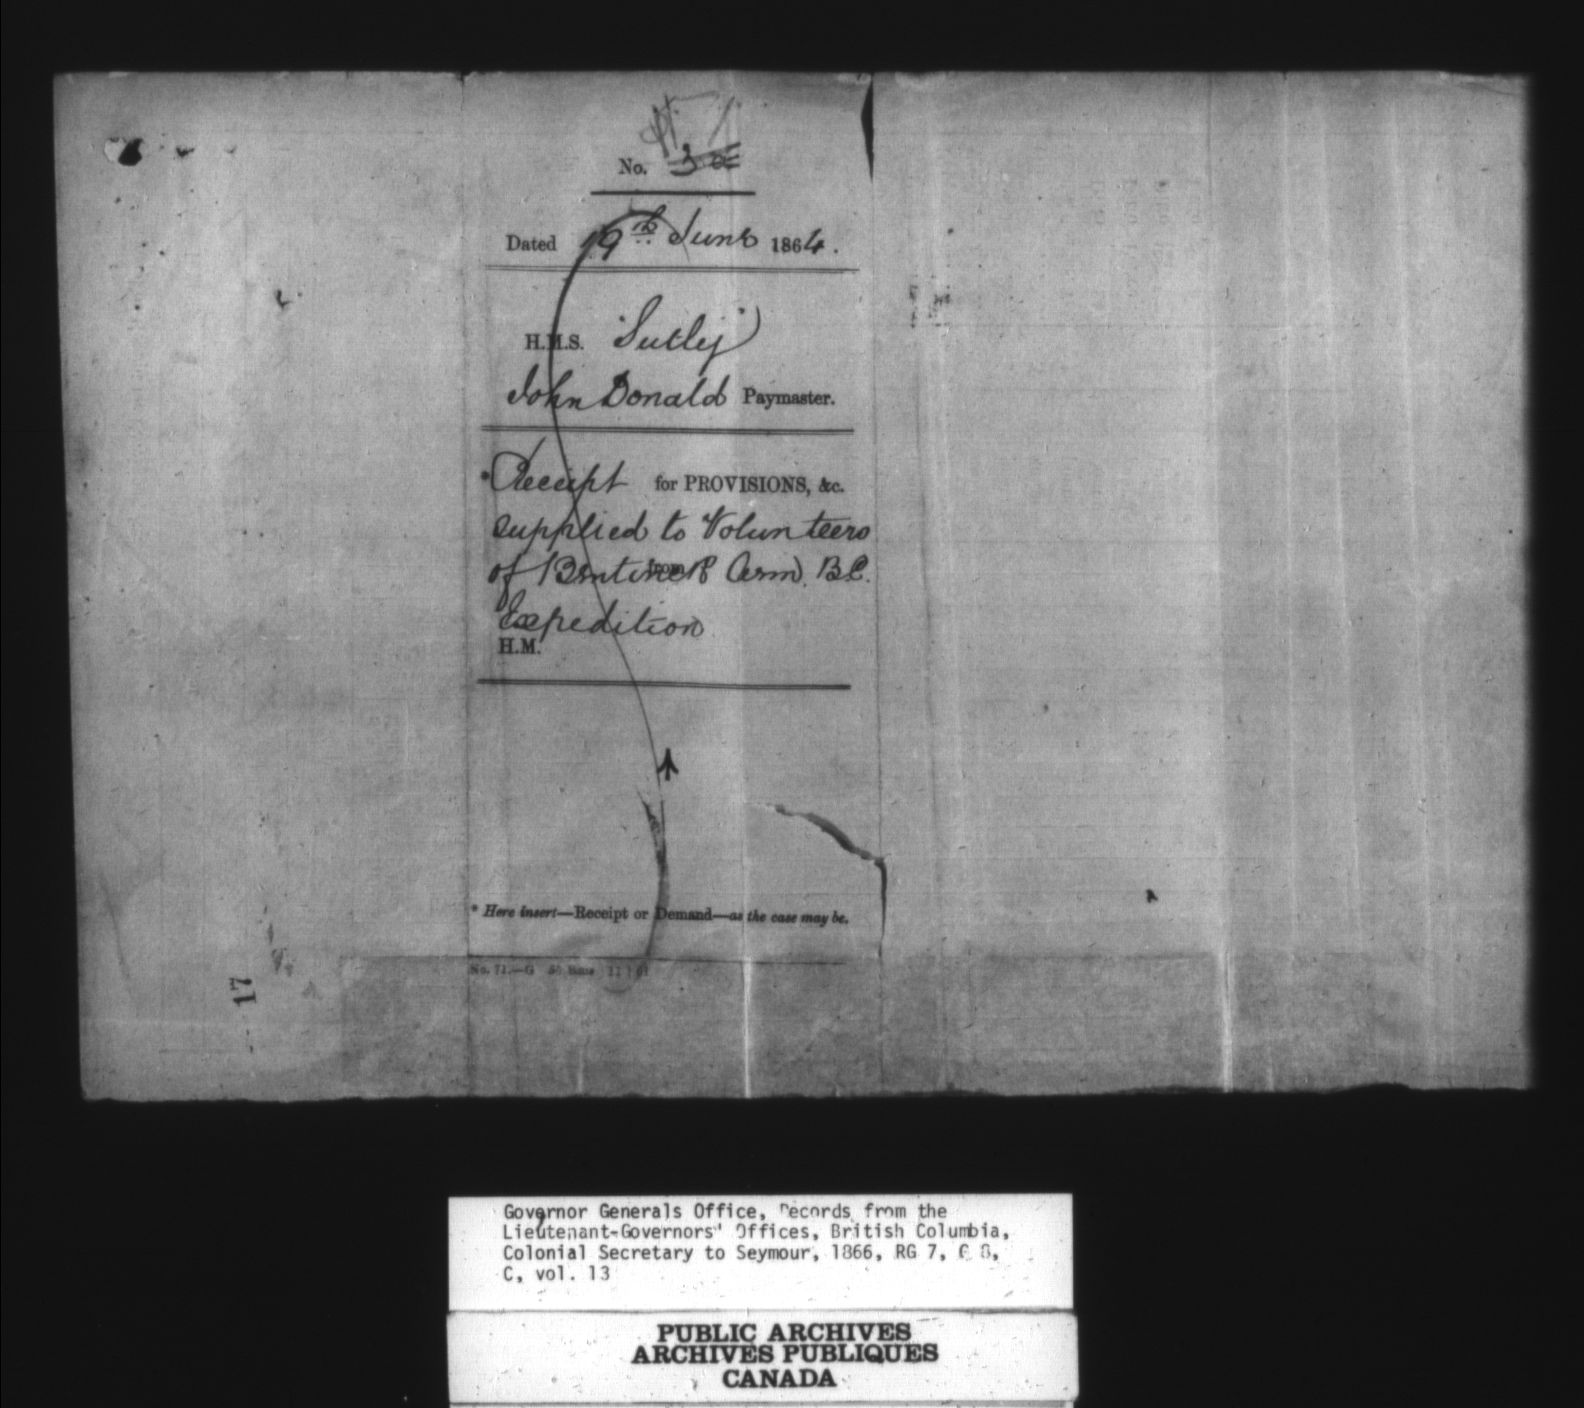 No.
Dated 19th June 1864.
H.M.S. "Sutlej"
John Donald Paymaster.
*Receipt for PROVISIONS, &c.
supplied to Volunteers
of Bentinck Arm B.C.
from
Expedition
H.M.
* Here insert—Receipt or Demand—as the case may be.
No. 71.—G
17
Governor Generals Office, Records from the
Lieutenant-Governors' Offices, British Columbia,
Colonial Secretary to Seymour, 1866, RG 7, G 8,
C, vol. 13
PUBLIC ARCHIVES
ARCHIVES PUBLIQUES
CANADA